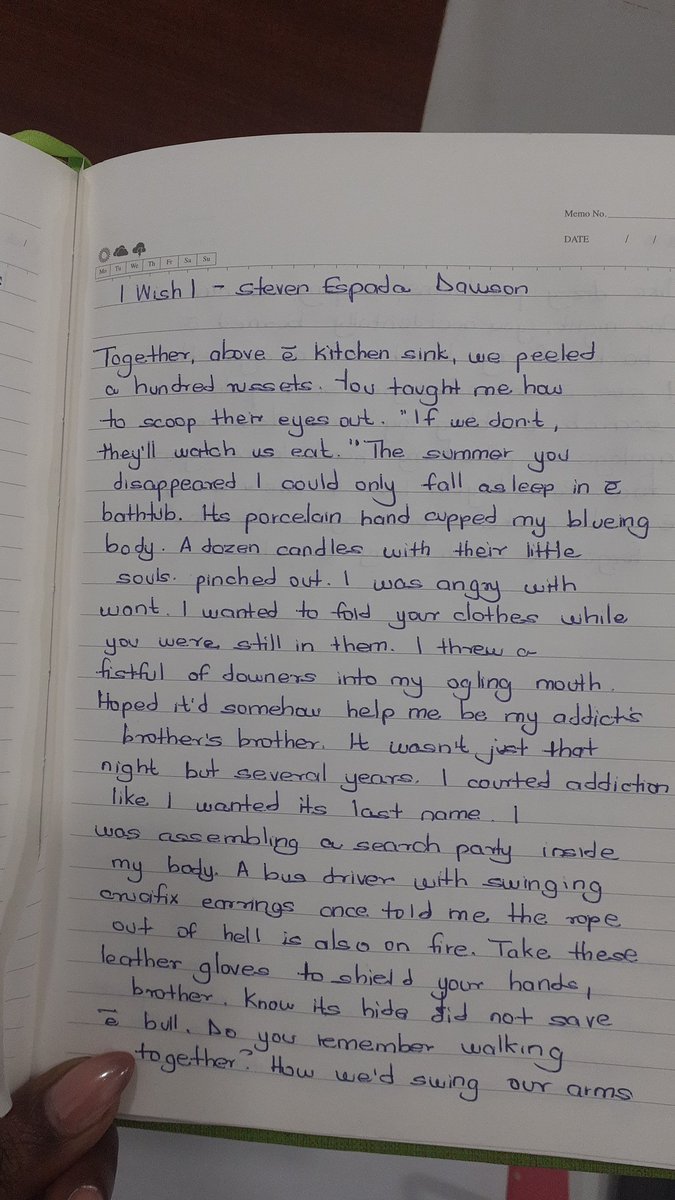 Memo No.
DATE / /
Mo Tu We Th Fr Sa Su
I Wish I - Steven Espada Dawson
Together, above ē kitchen sink, we peeled
a hundred russets. You taught me how
to scoop their eyes out. "If we don't,
they'll watch us eat." The summer you
disappeared I could only fall asleep in ē
bathtub. Its porcelain hand cupped my blueing
body. A dozen candles with their little
souls. pinched out. I was angry with
want. I wanted to fold your clothes while
you were still in them. I threw a
fistful of downers into my ogling mouth.
Hoped it'd somehow help me be my addict's
brother's brother. It wasn't just that
night but several years. I courted addiction
like I wanted its last name. I
was assembling a search party inside
my body. A bus driver with swinging
crucifix earrings once told me the rope
out of hell is also on fire. Take these
leather gloves to shield your hands,
brother. Know its hide did not save
ē bull. Do you remember walking
together? How we'd swing our arms